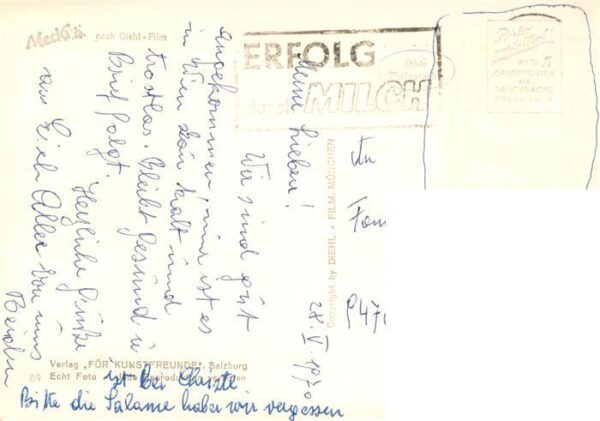 Mecki
nach Diehl-Film
ERFOLG
durch MILCH
5
GRUSSWORTEN
ALS
DRUCKSACHE
FRANKIEREN
An
Fam
28. V. 1970
Meine Lieben!
Wir sind gut
angekommen, nur ist es
in Wien kalt und
trostlos. Bleibt gesund u
Brief folgt.
Herzliche Grüße
an Euch Alle von uns
Beiden
Copyright by DIEHL - FILM, MÜNCHEN
Verlag "FÜR KUNSTFREUNDE", Salzburg
89 Echt Foto
ist bei Christl
Bitte die Salame haben wir vergessen